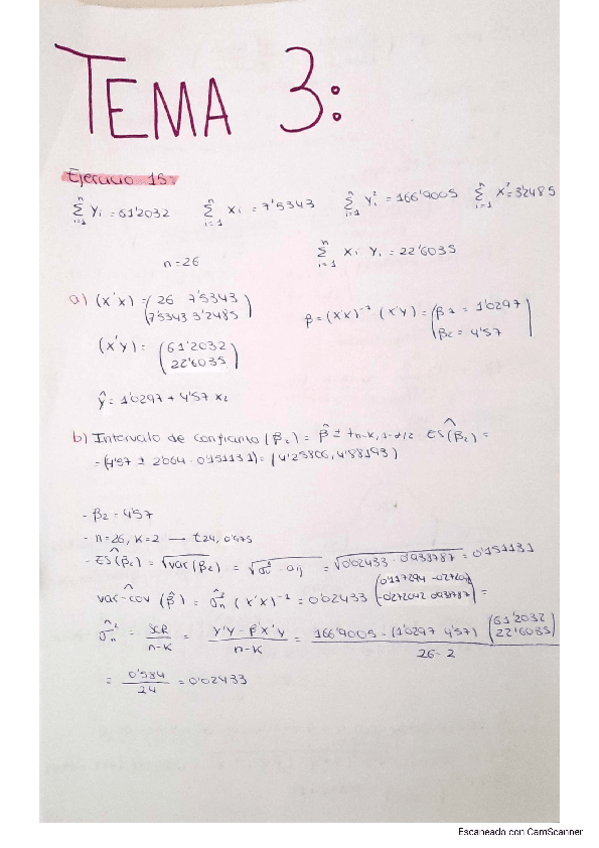 TEMA 3:
Ejercicio 15:
n∑i=1 Yi = 61'2032   n∑i=1 Xi = 7'5343   n∑i=1 Yi² = 166'9005   n∑i=1 X² = 3'2485
n=26   n∑i=1 Xi Yi = 22'6035
a) (X'X) = (26 7'5343
7'5343 3'2485)   β = (X'X)⁻¹ (X'Y) = (β1 = 1'0297
β2 = 4'57)
(X'Y) = (61'2032
22'6035)
ŷ = 1'0297 + 4'57 X2
b) Intervalo de confianza (β2) = β̂ ± tn-k, 1-α/2 ES(β2) =
= (4'57 ± 2'064 · 0'151131) = (4'25806, 4'88193)
- β2 = 4'57
- n=26, k=2 → t24, 0'975
- ES(β2) = √var(β2) = √σ² · aij = √0'02433 · 0'938787 = 0'151131
var-cov (β̂) = σ̂n² (X'X)⁻¹ = 0'02433 (0'117294 -0'272042
-0'272042 0'938787) =
σ̂n² = SCR / n-k = Y'Y - β'X'Y / n-k = 166'9005 - (1'0297 4'57) (61'2032
22'6035) / 26-2
= 0'584 / 24 = 0'02433
Escaneado con CamScanner